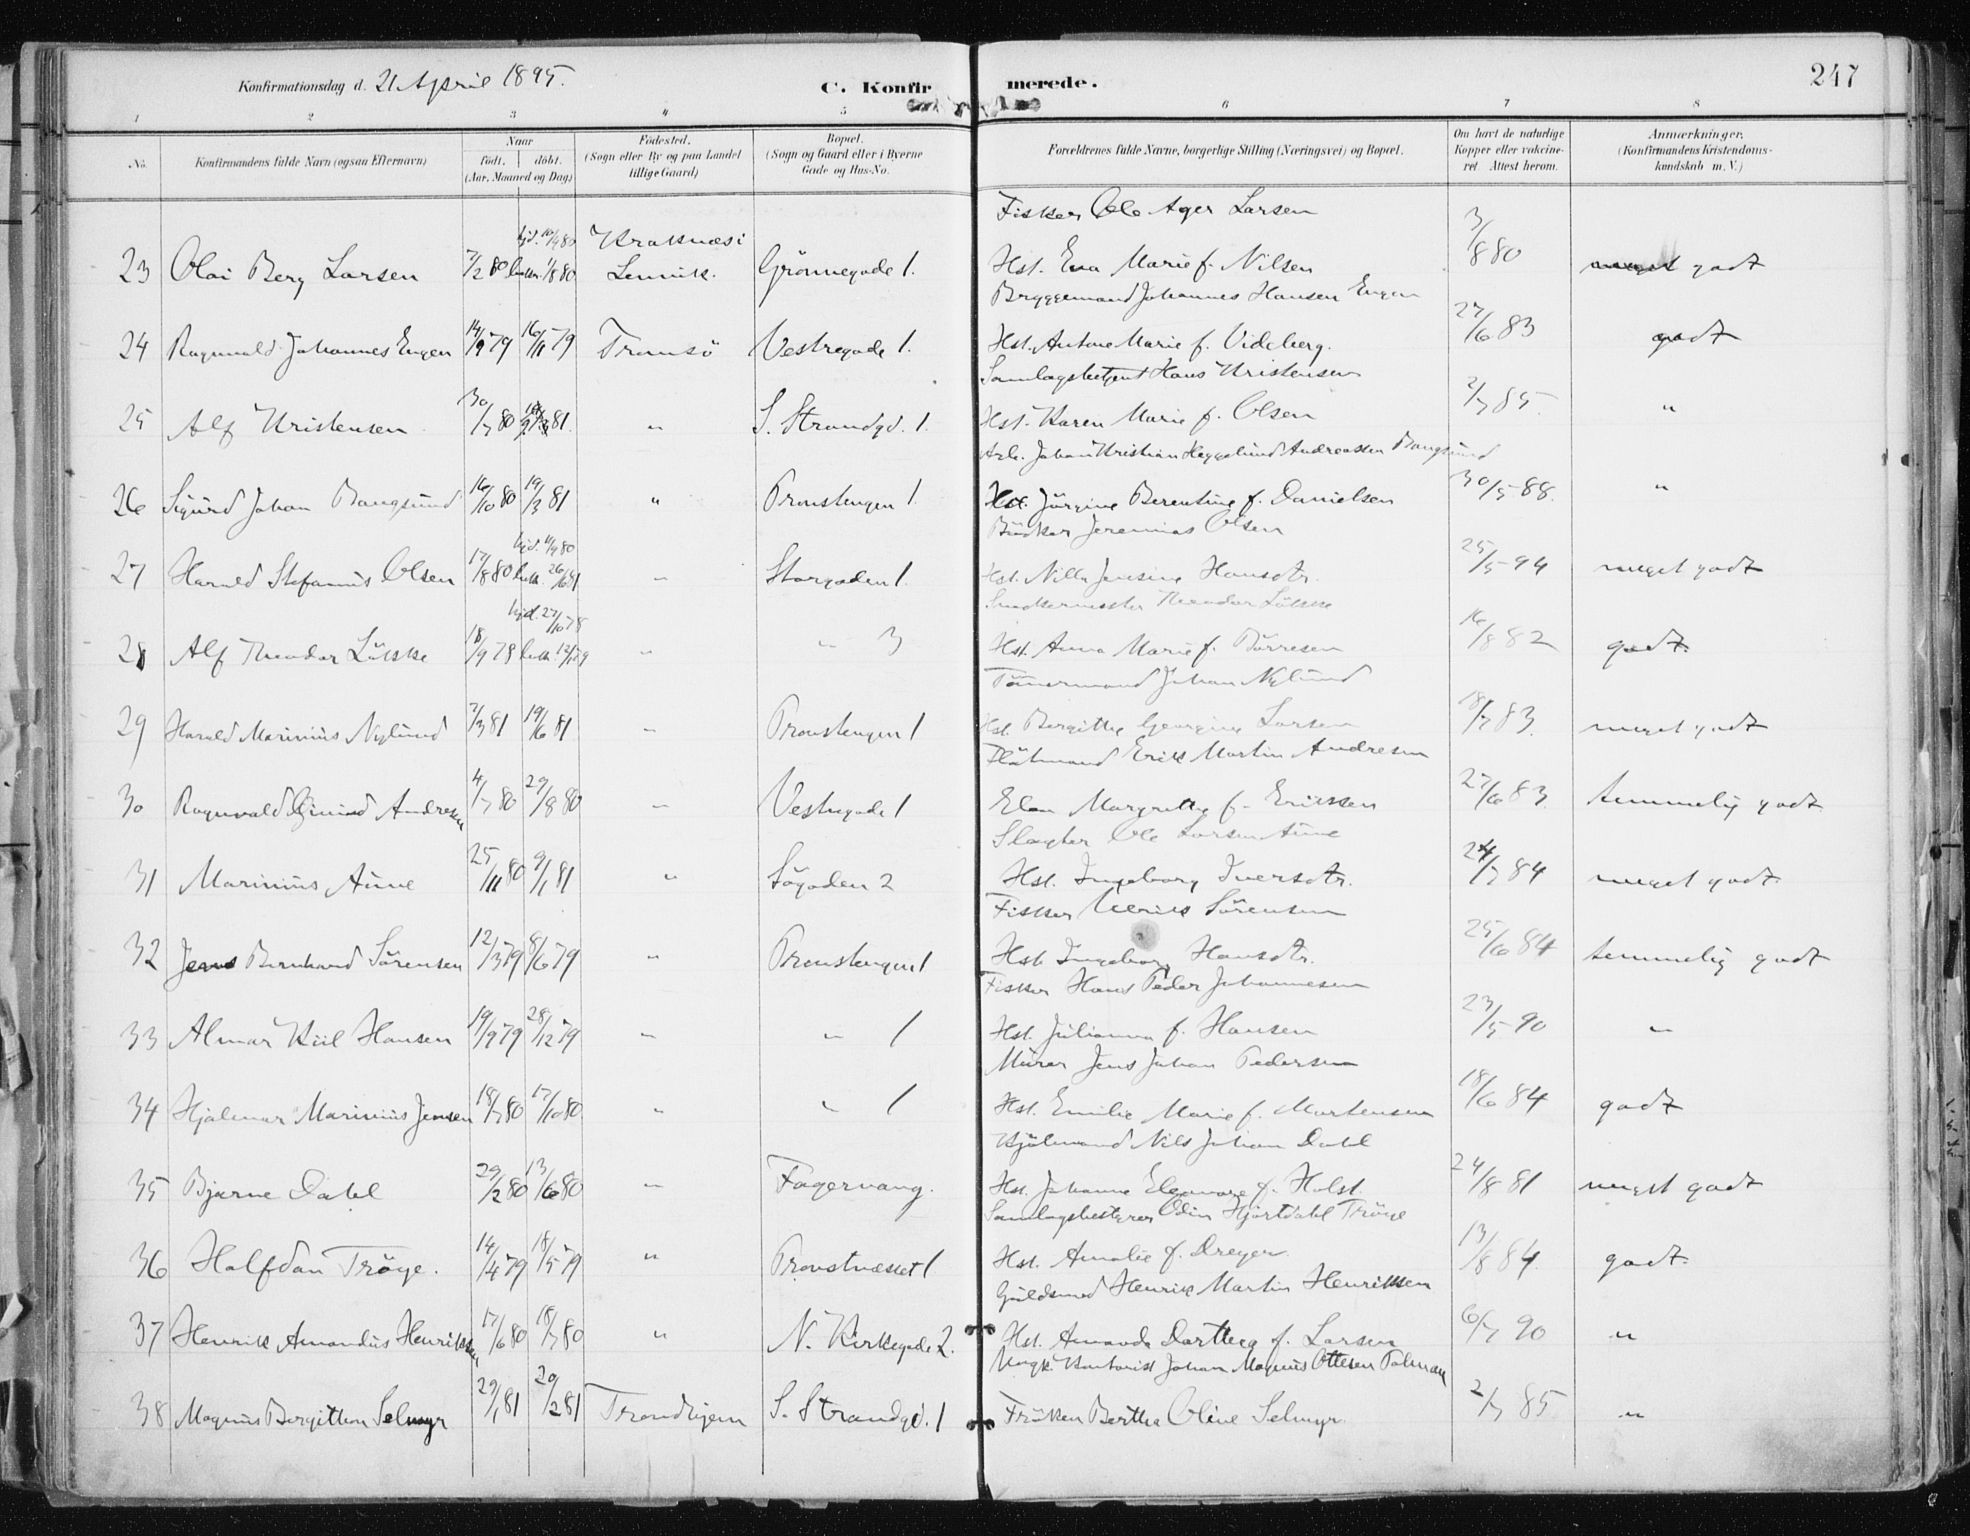 Konfirmationsdag d. 21 April 1895.
C. Konfirmerede.
247
1 2 3 4 5 6 7 8
No.
Konfirmandens fulde Navn (ogsaa Efternavn)
Naar
født. døbt.
(Aar, Maaned og Dag)
Fødested.
(Sogn eller By og paa Landet
tillige Gaard)
Bopæl.
(Sogn og Gaard eller i Byerne
Gade og Hus-No.
Forældrenes fulde Navne, borgerlige Stilling (Næringsvei) og Bopæl.
Om havt de naturlige
Kopper eller vakcine-
ret. Attest herom.
Anmærkninger.
(Konfirmandens Kristendoms-
kundskab m. V.)
Fisker Ole Ager Larsen
23 Olai Berg Larsen 7/2 80 1/8 80 Kraknæs i Lenvik. Grönnegade 1. Hst. Eva Marie f. Nilsen 3/8 80 meget godt
Bryggemand Johannes Hansen Engen
24 Ragnvald Johannes Engen 14/9 79 16/11 79 Tromsö Vestregade 1. Hst. Antone Marie f. Videberg. 27/6 83 godt
Samlagsbetjent Hans Kristensen
25 Alf Kristensen 30/7 80 81. " S. Strandgd. 1. Hst. Karen Marie f. Olsen 2/7 85. "
Arb. Johan Kristian Heggelund Andreassen Bangsund
26 Sigurd Johan Bangsund 16/10 80 19/3 81 " Provstengen 1. Hst. Jörgine Berentine f. Danielsen 30/5 88. "
Bödker Jeremias Olsen
27 Harald Stefanus Olsen 17/8 80 hjd. 11/9 80 bekr. 26/6 81 " Storgaden 1. Hst. Nille Jensine Hansdtr. 25/5 94 meget godt
Snedkermester Theodor Lökke
28 Alf Theodor Lökke 18/9 78 hjd. 27/10 78 " " 3 Hst. Anna Marie f. Börresen 16/8 82 godt.
Tömmermand Johan Nylund
29 Harald Marinius Nylund 7/3 81 19/6 81 " Provstengen 1 Hst. Bergitte Georgine Larsen 18/7 83. meget godt
Erik Martin Andresen
30 Ragnvald Andresen 4/7 80 29/8 80 " Vestregade 1 Elen Margrethe f. Eriksen 27/6 83 temmelig godt
Slagter Ole Larsen Aune
31 Marinius Aune 25/11 80 9/1 81 " Sögaden 2 Hst. Ingeborg Iversdtr. 24/7 84 meget godt.
Fisker Ulrik Sörensen
32 Jens Bernhard Sörensen 12/3 79 8/6 79 " Provstengen 1 Hst. Ingeborg Hansdtr. 25/6 84 temmelig godt
Fisker Hans Peder Johannesen
33 Almar Kiil Hansen 19/9 79 28/12 79 " " 1 Hst. Julianna f. Hansen 23/5 90 "
Murer Jens Johan Pedersen
34 Hjalmar Marinius Jensen 18/7 80 17/10 80 " " 1 Hst. Emilie Marie f. Mortensen 18/6 84 godt
Nils Johan Dahl
35 Bjarne Dahl 29/2 80 13/6 80 " Fagervang. Hst. Johanne Eleonore f. Holst. 24/8 81 meget godt
Samlagsbestyrer Odin Hjortdahl Tröye
36 Halfdan Tröye. 14/4 79 18/5 79 " Provstnæsset 1 Hst. Amalie f. Dreyer. 13/8 84. godt.
Guldsmed Henrik Martin Henriksen
37 Henrik Amandus Henriksen 17/6 80 18/7 80 " N. Kirkegade 2. Hst. Amanda Dorthea f. Larsen 6/7 90 "
Ungk. Kontorist Johan Magnus Ottesen
38 Magnus Bergithon Selmyr 29/1 81 20/2 81 Trondhjem S. Strandgd. 1 Fröken Bertha Oline Selmyr. 2/7 85 "